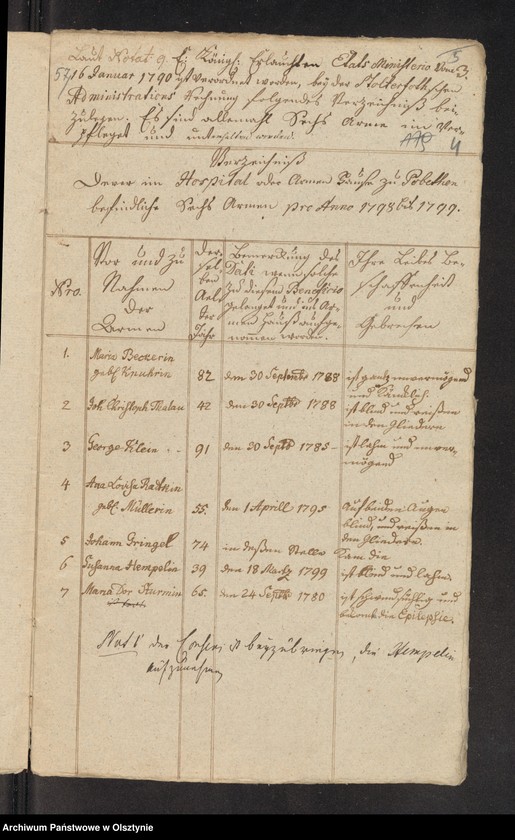 Laut Notat 9. E: Königl: Erlauchten Etats Ministerio vom 3.
16 Januar 1790 ist verordnet worden, bey der Stolterfoth,schen
Administrations Rechnung folgendes Verzeichniß bei
zulegen. Es sind allemahl Sechs Arme im Ver-
pfleget und unterhalten worden.
5
57
4
Verzeichniß
Derer im Hospital oder Armen Hause zu Pobethen
befindliche Sechs Armen pro Anno 1798 bis 1799.
Nro.
Vor und Zu
Nahmen
der
Armen
Der-
sel-
ben
Alt
Jahr
Bemerckung des
Dati wenn solche
zu diesem Beneficio
gelanget und ins Ar-
men Hauß aufge-
nomen worden.
Ihre Leibes Be-
schaffenheit
und
Gebrechen
1. Maria Beckerin
gebl. Knuhrin 82 den 30 Septembr 1788 ist gantz unvermögend
und
2 Joh Christoph Thalau 42 den 30 Septbr 1788 ist blind und reißen
in den Gliedern
3 George Klein 91 den 30 Septb 1785 ist lahm und unver-
mögend
4 Ana Lovisa Ratkin
gebl. Müllerin 55. den 1 Aprill 1795 auf beyden Augen
blind, und reißen in
den Gliedern.
5 Johann Gringel 74 in deßen Stelle kam die
6 Susanna Hempelin 39 den 18 Martz 1799 ist blind und lahm.
7 Maria Dor Sturmin 65. den 24 Septbr 1780 ist schwindsüchtig und
die Epilepsie.
Not 1 der Consens ist beyzubringen, die Hempelin
aufzunehmen
Archiwum Państwowe w Olsztynie